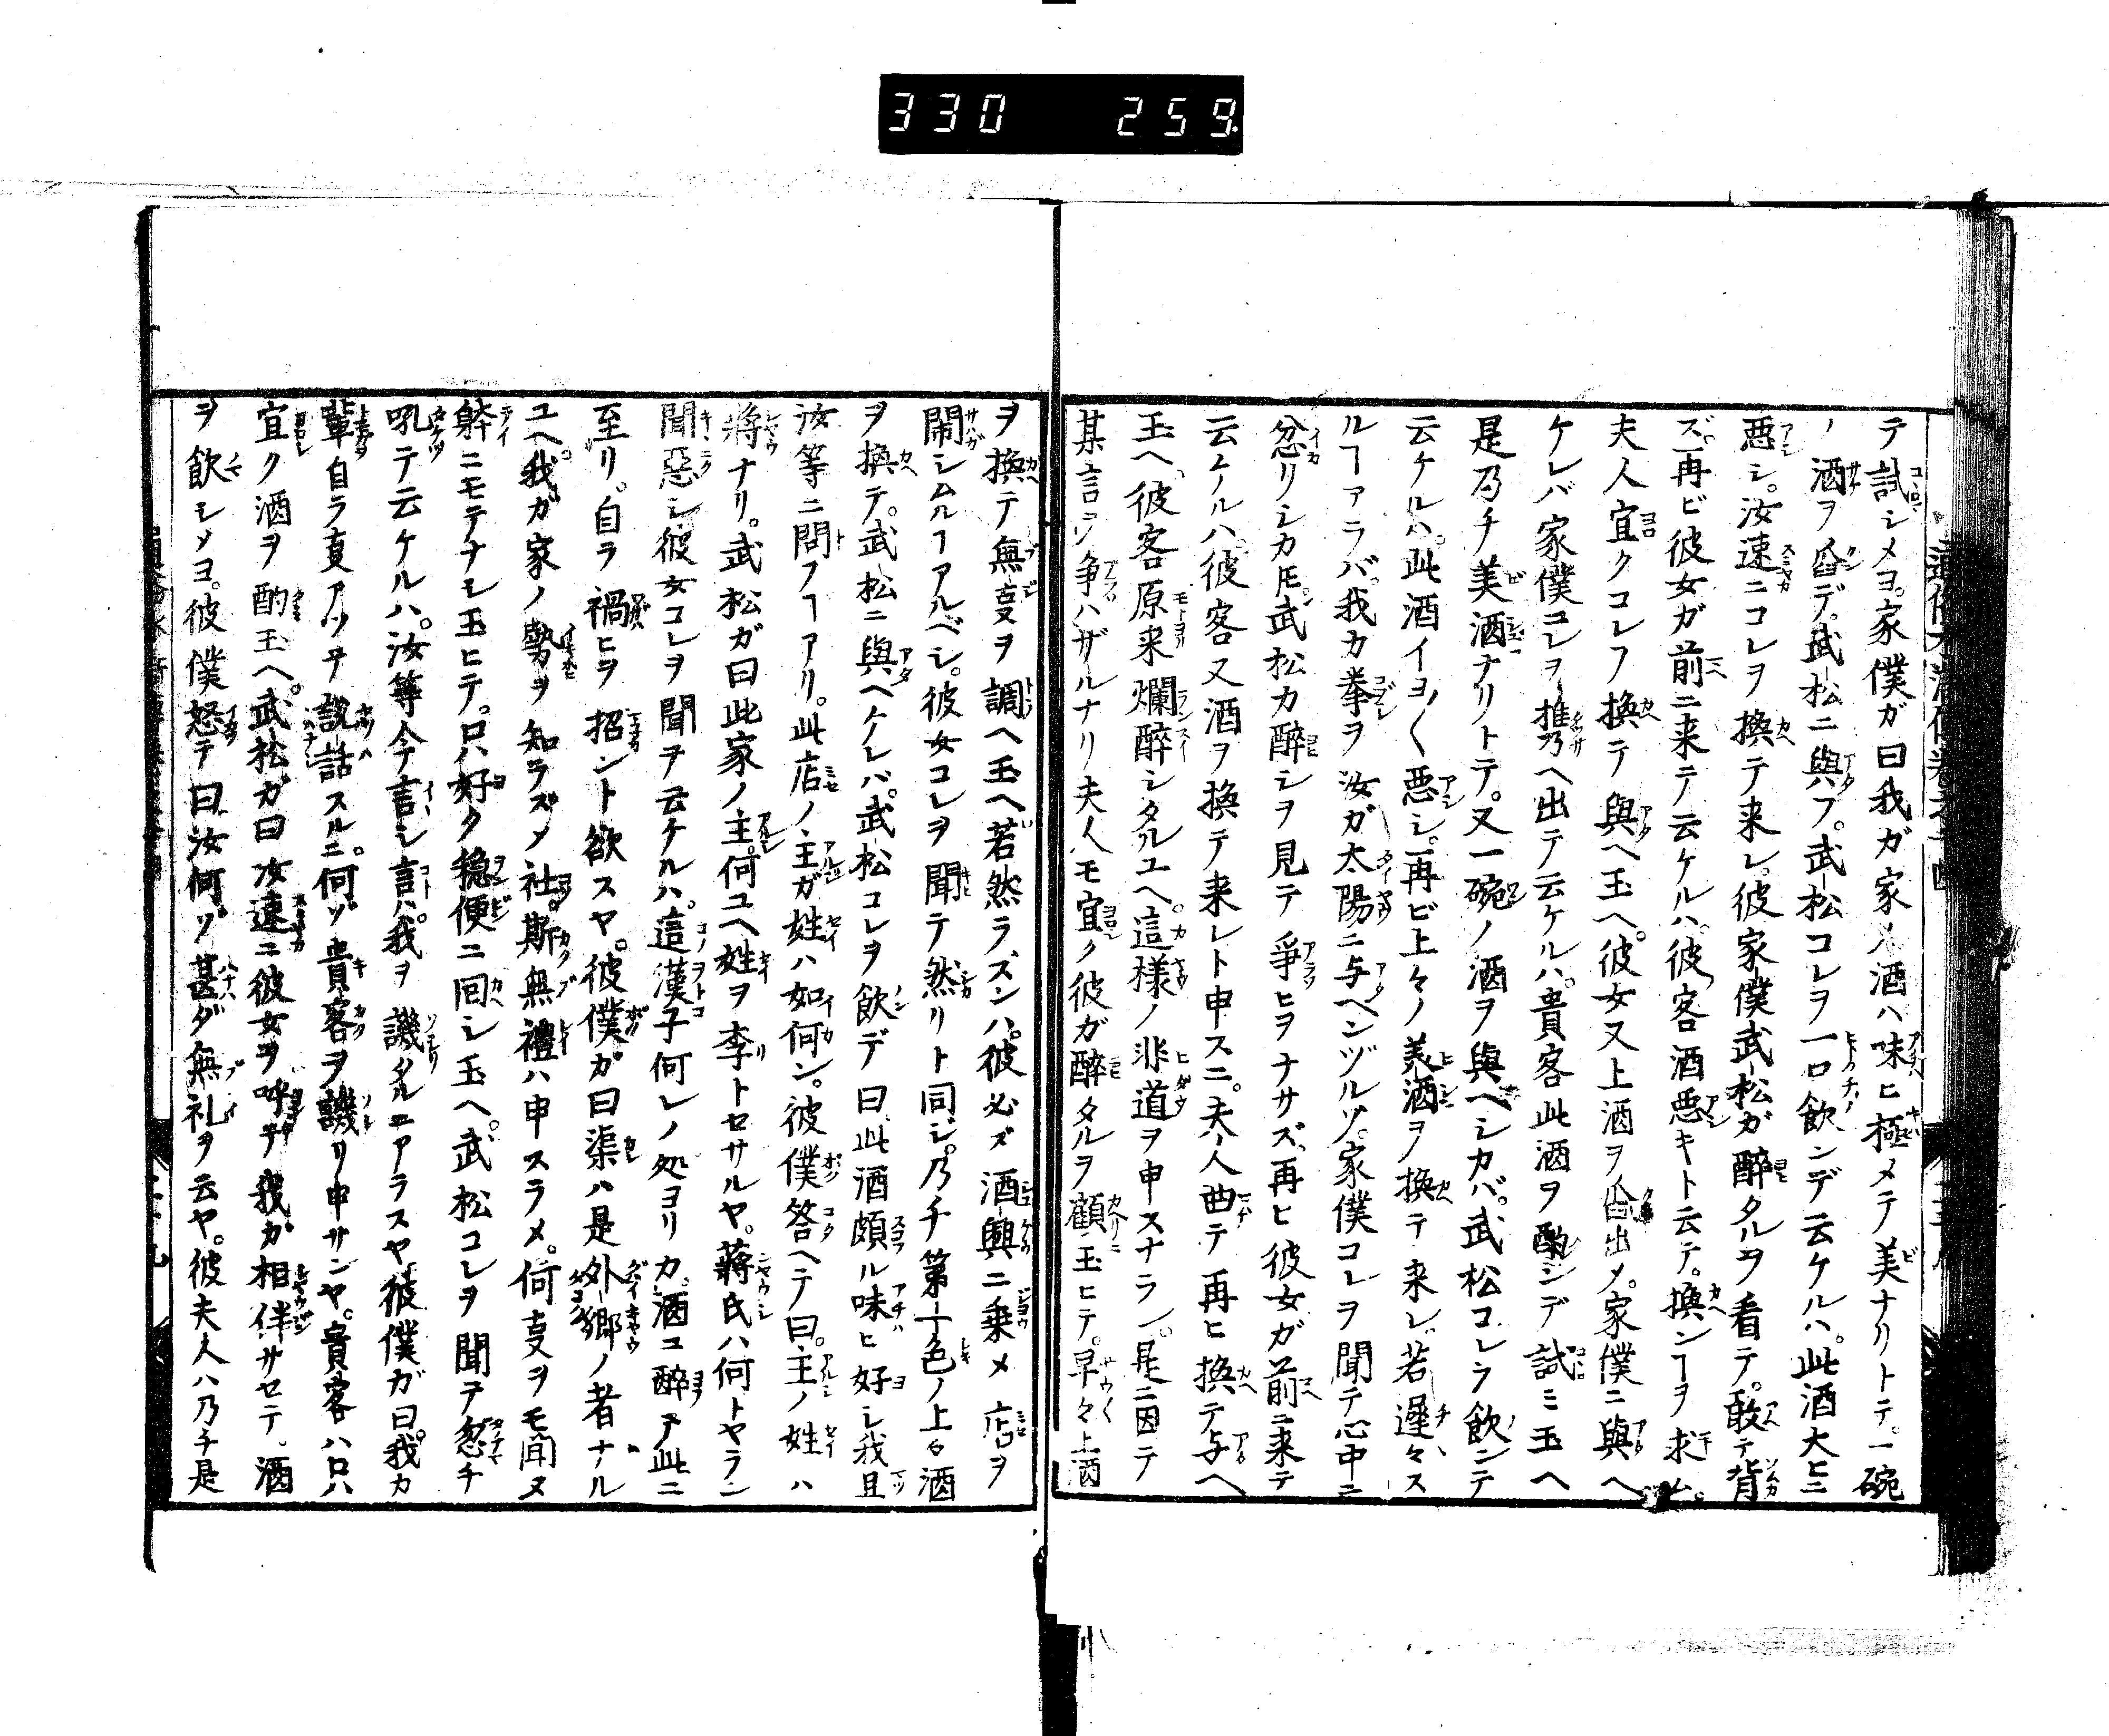 330 259
テ試シメヨ。家僕ガ曰我ガ家ノ酒ハ味ヒ極メテ美ナリトテ。一碗
ノ酒ヲ舀デ。武松ニ與フ。武松コレヲ一口飲ンデ云ケルハ。此酒大ヒニ
悪シ。汝速ニコレヲ換テ来レ。彼家僕武松ガ醉タルヲ看テ。敢テ背
ズ再ビ彼女ガ前ニ来テ云ケルハ。彼客酒悪キト云テ。換ンヿヲ求ム。
夫人宜クコレヲ換テ與ヘ玉ヘ。彼女又上酒ヲ舀出メ。家僕ニ與ヘ
ケレバ家僕コレヲ推乃ヘ出テ云ケルハ。貴客此酒ヲ酌ンデ試ミ玉ヘ
是乃チ美酒ナリトテ。又一碗ノ酒ヲ與ヘシカバ。武松コレヲ飲ンテ
云ケルハ。此酒イヨ〱悪シ。再ビ上々ノ美酒ヲ換テ来レ。若遅々ス
ルヿアラバ。我カ拳ヲ汝ガ太陽ニ与ヘンヅルゾ。家僕コレヲ聞テ心中ニ
忿リシカ𪜈武松カ醉シヲ見テ爭ヒヲナサズ。再ヒ彼女ガ前ニ来テ
云ケルハ。彼客又酒ヲ換テ来レト申スニ。夫人曲テ再ヒ換テ与ヘ
玉ヘ。彼客原来爛醉シタルユヘ。這様ノ非道ヲ申スナラン。是ニ因テ
某言ヲ争ハザルナリ夫人モ宜ク彼ガ醉タルヲ顧玉ヒテ。早々上酒
ヲ換テ無叓ヲ調ヘ玉ヘ若然ラズンハ。彼必ズ酒興ニ乗メ店ヲ
閙シムルヿアルベシ。彼女コレヲ聞テ然リト同ジ。乃チ第一色ノ上酒
ヲ換テ。武松ニ與ヘケレバ。武松コレヲ飲デ曰此酒頗ル味ヒ好シ我且
汝等ニ問フヿアリ。此店ノ主ガ姓ハ如何ン。彼僕答ヘテ曰。主ノ姓ハ
蒋ナリ。武松ガ曰此家ノ主。何ユヘ姓ヲ李トセサルヤ。蒋氏ハ何トヤラン
聞惡シ彼女コレヲ聞ヲ云ケルハ。這漢子何レノ処ヨリカ。酒ニ醉テ此ニ
至リ。自ラ禍ヒヲ招ント欲スヤ。彼僕ガ曰渠ハ是外郷ノ者ナル
ユヘ。我ガ家ノ勢ヲ知ラズメ社。斯無禮ハ申スラメ。何叓ヲモ聞ヌ
躰ニモテナシ玉ヒテ。只好ク穏便ニ囘シ玉ヘ。武松コレヲ聞テ忽チ
吼テ云ケルハ。汝等今言シ言ハ。我ヲ譏タルニアラスヤ彼僕ガ曰。我カ
輩自ラ叓アツテ説話スルニ。何ゾ貴客ヲ譏リ申サンヤ。貴客ハ只ハ
宜ク酒ヲ酌玉ヘ。武松ガ曰汝速ニ彼女ヲ呼テ我ガ相伴サセテ。酒
ヲ飲シメヨ。彼僕怒テ曰汝何ゾ甚ダ無礼ヲ云ヤ。彼夫人ハ乃チ是